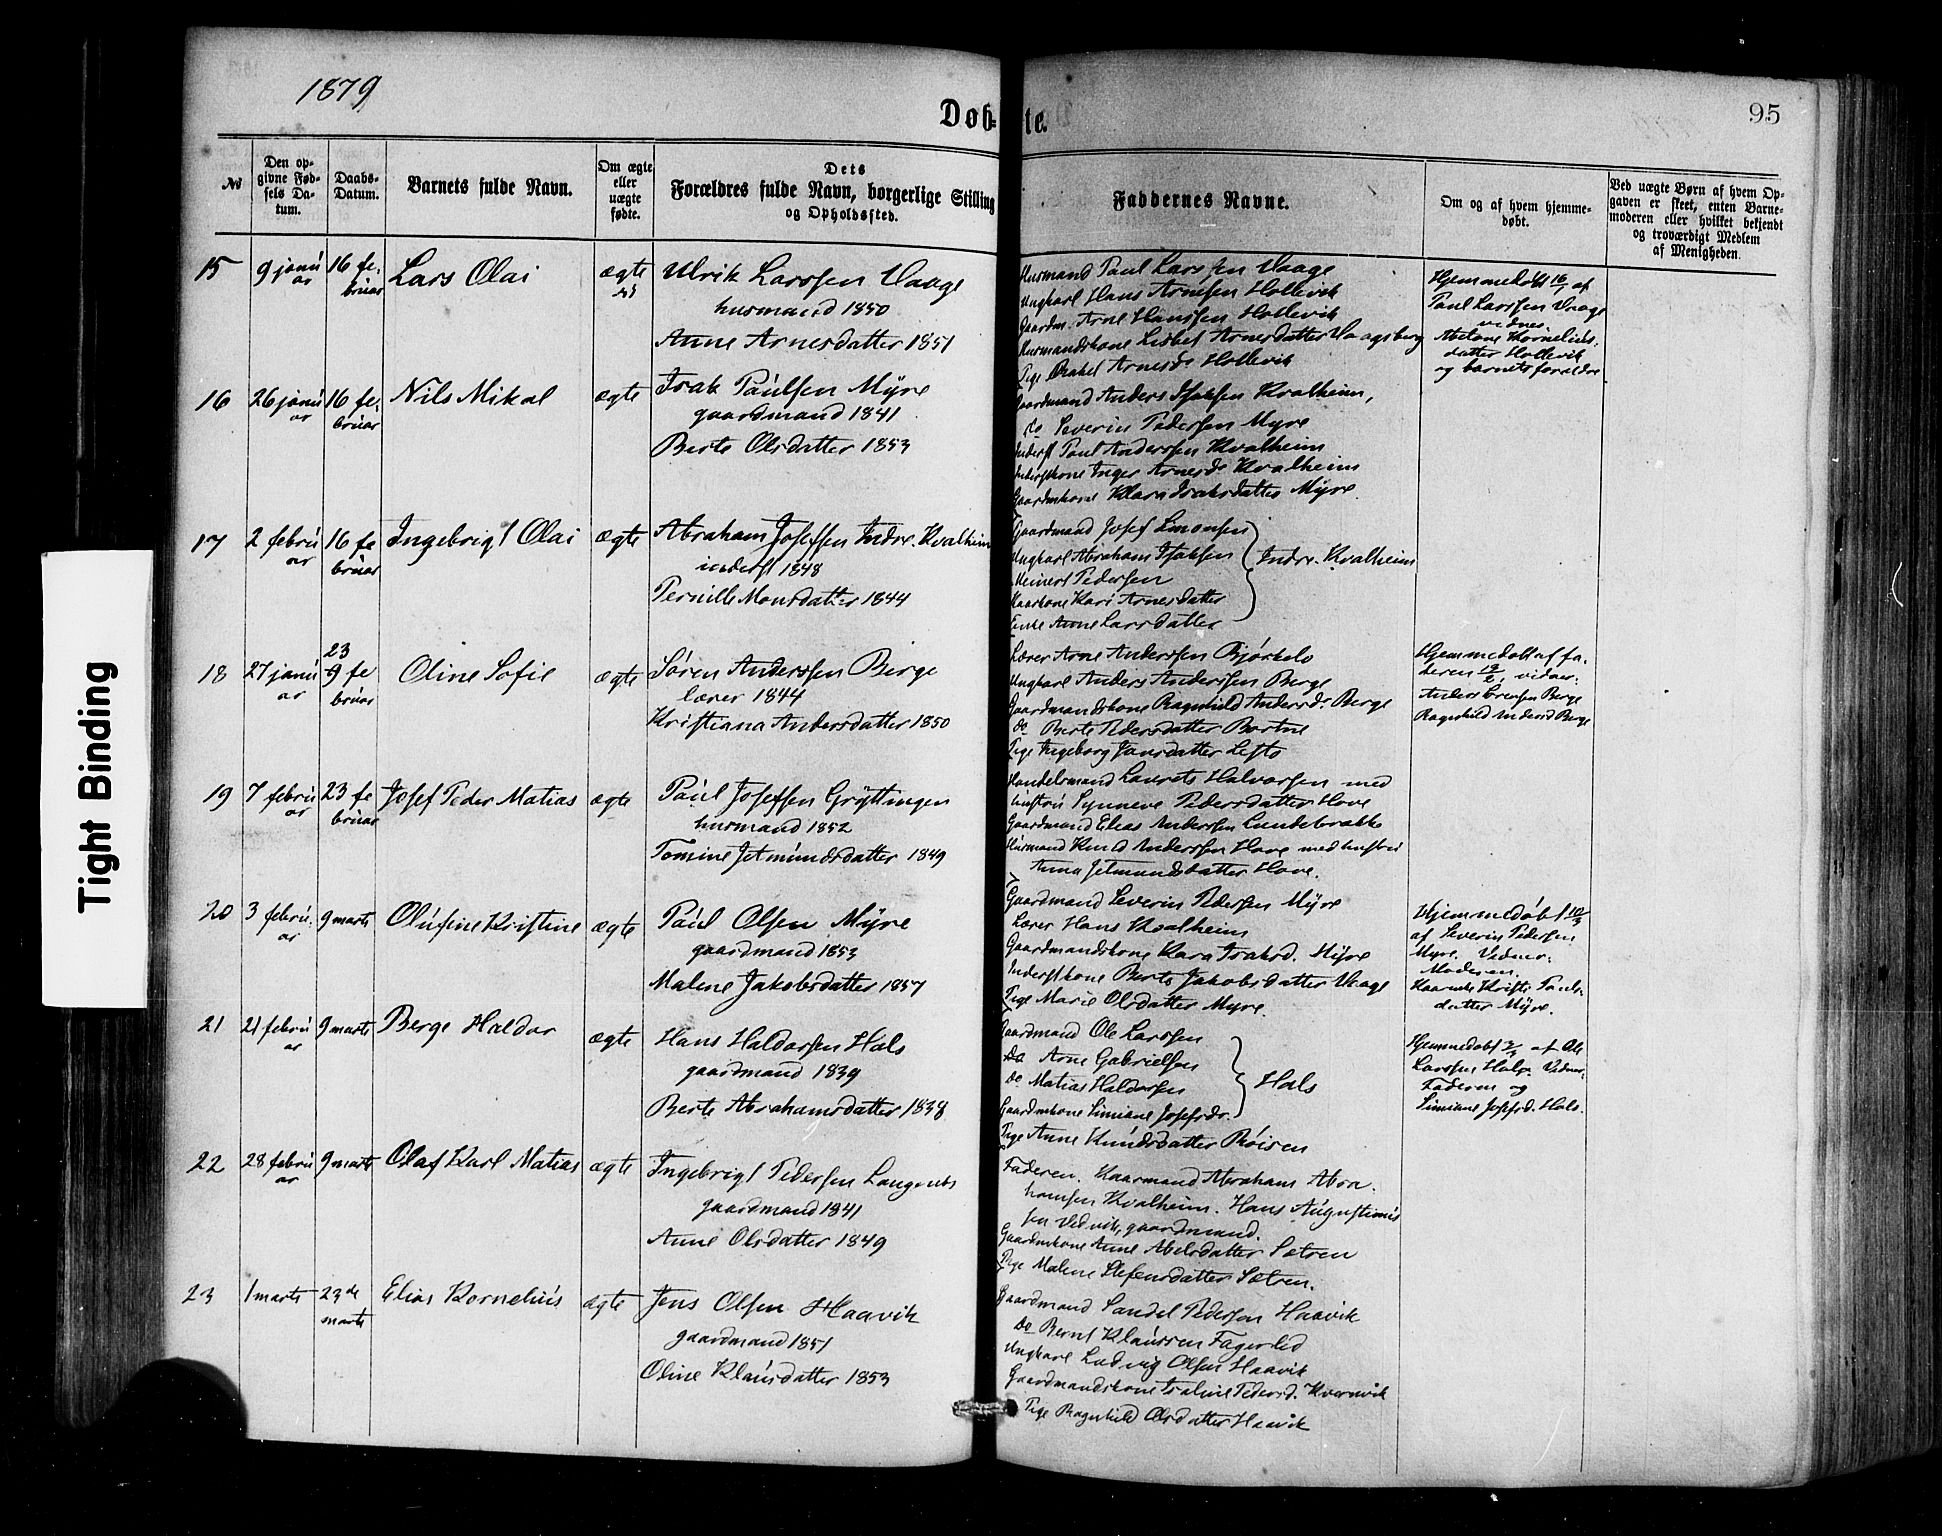 1879
Døb-
te.
95
Tight Binding
№
Den op-
givne Fød-
sels Da-
tum.
Daabs-
Datum.
Barnets fulde Navn.
Om ægte
eller
uægte
fødte.
Dets
Forældres fulde Navn, borgerlige Stilling
og Opholdssted.
Faddernes Navne.
Om og af hvem hjemme-
døbt.
Ved uægte Børn af hvem Op-
gaven er skeet, enten Barne-
moderen eller hvilket bekjendt
og troværdigt Medlem
af Menigheden.
15
9 janu
ar
16 fe.
bruar
Lars Olai
ægte
Ulrik Larssen Vaage
husmand 1850
Anne Arnesdatter 1851
Husmand Paul Larssen Vaage
Ungkarl Hans Arnesen Hollevik
Gaardm. Arne Hanssen Hollevik
Husmandskone Lisbet Arnesdatter Vaagsberg
Pige Rakel Arnesd. Hollevik
Hjemmedøbt 16/1 af
Paul Larssen Vaage
vidner
Kornelius.
datter Hollevik
og barnets forældre
16
26 janu
ar
16 fe.
bruar
Nils Mikal
ægte
Isak Paulsen Myre
gaardmand 1841
Berte Olsdatter 1853
Gaardmand Anders Isaksen Kvalheim,
do Severin Pedersen Myre
Inderst Paul Anderssen Kvalheim
Inderstkone Inger Arnesd. Kvalheim
Gaardmkone Klara Isaksdatter Myre
17
2 febru
ar
16 fe
bruar
Ingebrigt Olai
ægte
Abraham Josefsen Indre. Kvalheim
inderst 1848
Pernille Monsdatter 1844
Gaardmand Josef Simonsen
Ungkarl Abraham Isaksen
Meinert Pedersen
Kaarkone Kari Arnesdatter
Enke Anne Larsdatter
Indre. Kvalheim
18
27 janu
ar
23
9 fe
bruar
Oline Sofie
ægte
Søren Anderssen Berge
lærer 1844
Kristiana Andersdatter 1850
Lærer Arne Anderssen Bjørkelo
Ungkarl Anders Anderssen Berge
Gaardmandskone Ragnhild Andersd. Berge
do Berte Pedersdatter Bortne
Pige Ingeborg Jansdatter Lefto
Hjemmedøbt af fa-
deren, vidner:
Anders Berge
Ragnhild Andersd Berge
19
7 febru
ar
23 fe
bruar
Josef Peder Matias
ægte
Paul Josefsen Gryttingen
husmand 1852
Tomine Jetmundsdatter 1849
Handelsmand Laurets Halvorsen med
hustru Synneve Pedersdatter Hove
Gaardmand Elias Anderssen Lundebrekke
Husmand Knud Anderssen Hove med hustru
Anna Jetmundsdatter Hove.
20
3 febru.
ar
9 marts
Olufine Kristine
ægte
Paul Olsen Myre
gaardmand 1853
Malene Jakobsdatter 1857
Gaardmand Severin Pedersen Myre
Lærer Hans Kvalheim
Gaardmandskone Kara Isaksd. Myre
Inderstkone Berte Jakobsdatter Vaage
Pige Marie Olsdatter Myre.
Hjemmedøbt
af Severin Pedersen
Myre. Vidner.
Moderen.
Pauls-
datter Myre.
21
21 febru
ar
9 marts
Berge Haldor
ægte
Hans Haldorsen Hals
gaardmand 1839
Berte Abrahamsdatter 1838
Gaardmand Ole Larssen
Do Arne Gabrielsen
Do Matias Haldorsen
Gaardmkone Simiane Josefsdr.
Hals
Pige Anne Knudsdatter Røisen
Hjemmedøbt af Ole
Larssen Hals. Vidner:
Faderen og
Simiane Josefsd. Hals.
22
28 febru
ar
9 marts
Olaf Karl Matias
ægte
Ingebrigt Pedersen Langenes
gaardmand 1841
Anne Olsdatter 1849
Faderen. Kaarmand Abraham Abra-
hamsen Kvalheim. Hans Augustinus
sen Vedvik, gaardmand.
Gaardmkone Anne Abelsdatter Sætren
Pige Malene Stefensdatter Sætren.
23
1 marts
23de
marts
Elias Kornelius
ægte
Jens Olsen Haavik
gaardmand 1851
Oline Klausdatter 1853
Gaardmand Sandel Pedersen Haavik
Do Bernt Klaussen Fagerlid
Ungkarl Ludvig Olsen Haavik
Gaardmandskone Isaline Pedersd. Kvernevik
Pige Ragnhild Olsdatter Haavik